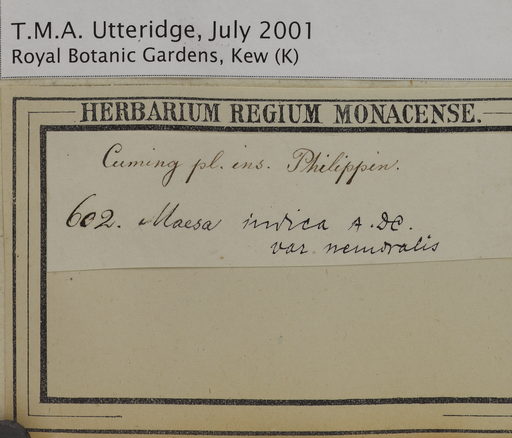 T.M.A. Utteridge, July 2001
Royal Botanic Gardens, Kew (K)
HERBARIUM REGIUM MONACENSE.
Cuming pl. ins. Philippin.
602. Maesa indica A. DC.
var. nemoralis